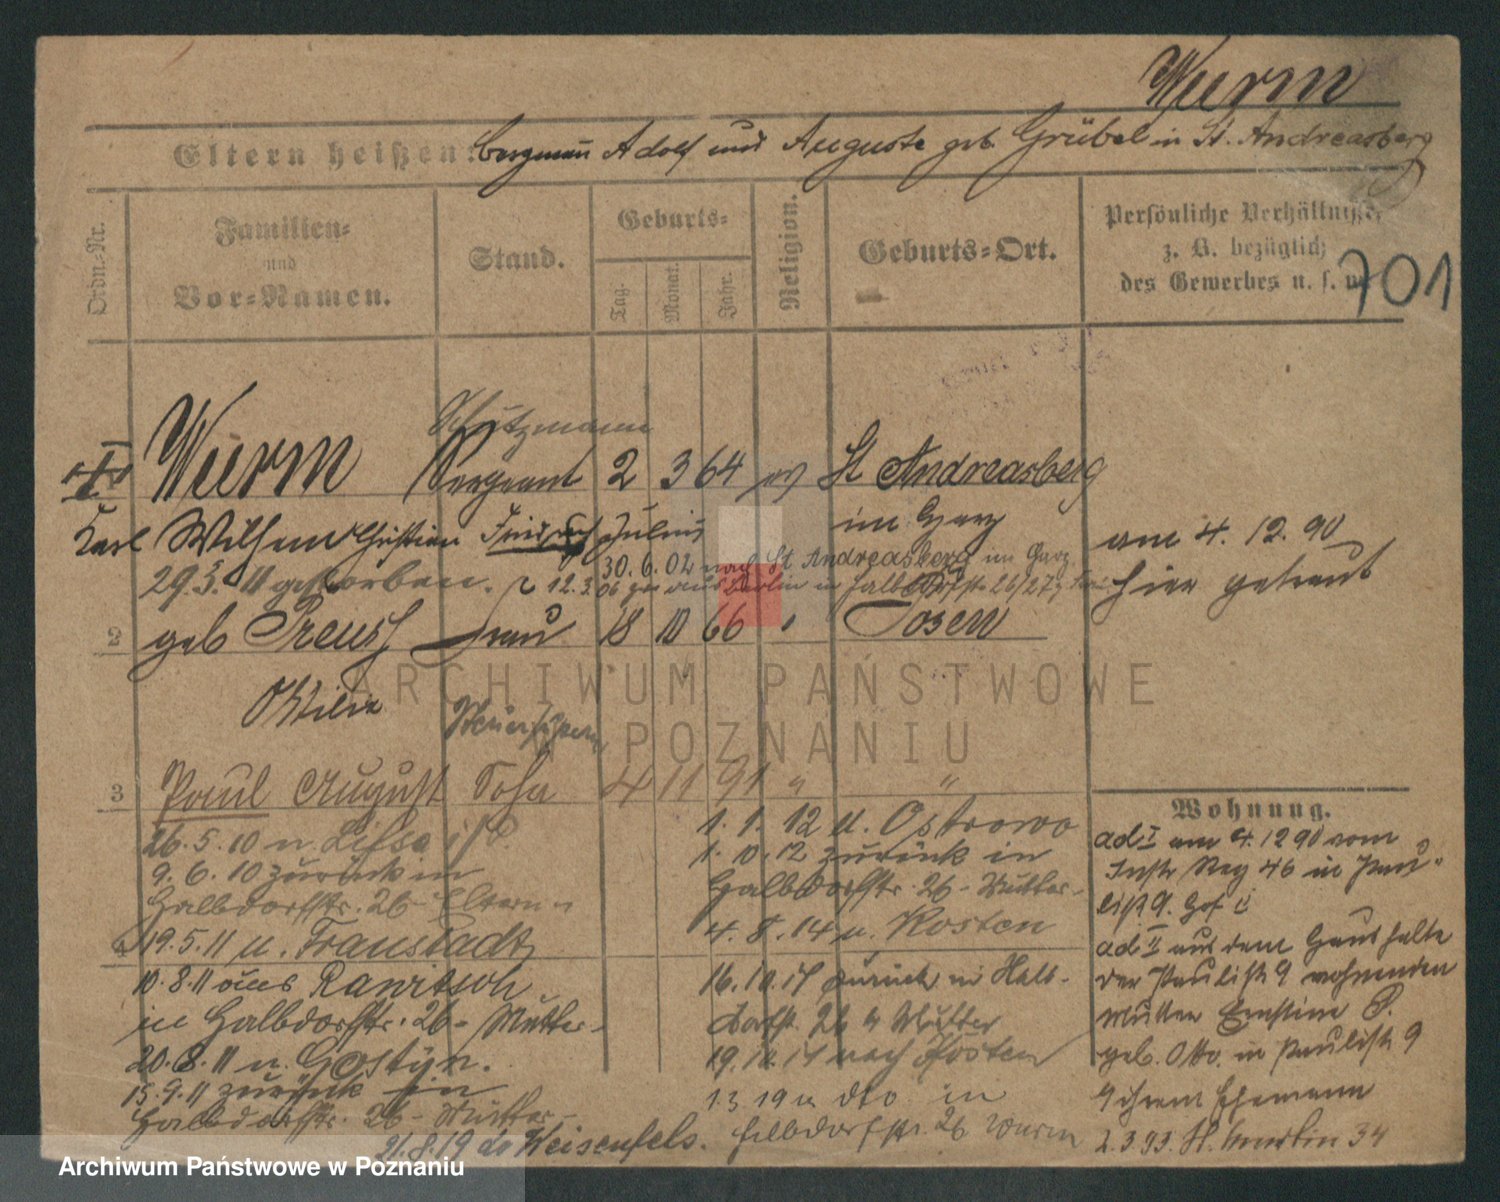 Wurm
Eltern heißen: Bergmann Adolf und Auguste geb. Grübel in St. Andreasberg
Ordn.-Nr.
Familien-
und
Vor-Namen.
Stand.
Geburts-
Tag.
Monat.
Jahr.
Religion.
Geburts-Ort.
Persönliche Verhältnisse,
z. B. bezüglich
des Gewerbes u. s. w.
701
Schutzmann
Wurm Sergeant 2 3 64 ev St Andreasberg
im Harz
Karl Wilhelm Christian Friedrich Julius
am 4. 12. 90
hier getraut
30. 6. 02 nach St Andreasberg im Harz
29.3. 11 gestorben. 12. 3. 06 aus Berlin in Halbdorfstr 26/27
2 geb Preuss Frau 18 10 66 " Posen
Ottilie
3 Paul August Sohn 4 11 91 " "
26. 5. 10 n. Lissa
9. 6. 10 zurück in
Halbdorfstr. 26 Eltern
4 19. 5. 11 n. Fraustadt
10. 8. 11 aus Rawitsch
in Halbdorfstr. 26 - Mutter -
20. 8. 11 n. Gostyn.
15. 9. 11 zurück in
Halbdorfstr. 26 - Mutter -
21. 8. 19 do Weisenfels.
1. 1. 12 n. Ostrowo
1. 10. 12 zurück in
Halbdorfstr. 26 - Mutter -
4. 8. 14 n. Kosten
16. 10. 14 zurück in Halb-
dorfst. 26 Mutter
19. 10. 14 nach Kosten
1 3 19 dto in
Halbdorfstr. 26 Wurm
Wohnung.
ad I am 4. 12 90 vom
Inft Reg 46 in Pau-
list 9. Hof
ad II aus dem Haushalte
der Paulist 9 wohnenden
Mutter Ernstine P.
geb. Otto in Paulistr 9
ihrem Ehemann
2. 3 93. St. Martin 34
ARCHIWUM PAŃSTWOWE
W POZNANIU
Archiwum Państwowe w Poznaniu